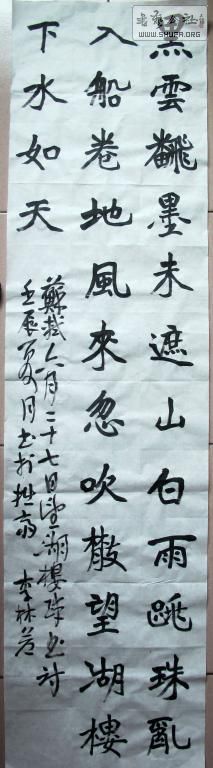 黑雲飜墨未遮山白雨跳珠亂
入船卷地風來忽吹散望湖樓
下水如天
蘇軾六月二十七日望湖樓醉書詩
壬辰夏月書於
李林
WWW.SHUFA.ORG